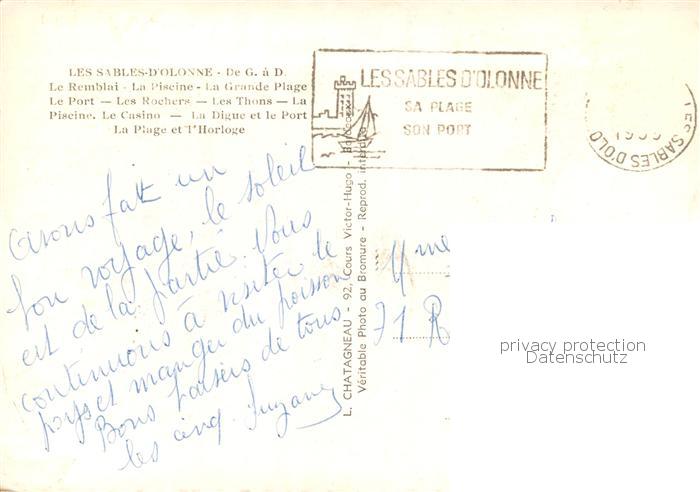 LES SABLES-D'OLONNE - De G. à D.
Le Remblai - La Piscine - La Grande Plage
Le Port — Les Rochers — Les Thons — La
Piscine. Le Casino — La Digue et le Port
La Plage et l'Horloge
LES SABLES D'OLONNE
SA PLAGE
SON PORT
LES SABLES D'OLO
Avons fait un
bon voyage, le soleil
est de la partie. Nous
continuons à visiter le
pays et manger du poisson
Bons baisers de tous
les cinq. Suzanne
L. CHATAGNEAU - 92, Cours Victor-Hugo -
Véritable Photo au Bromure - Reprod. interdite
Mme
71 R
privacy protection
Datenschutz